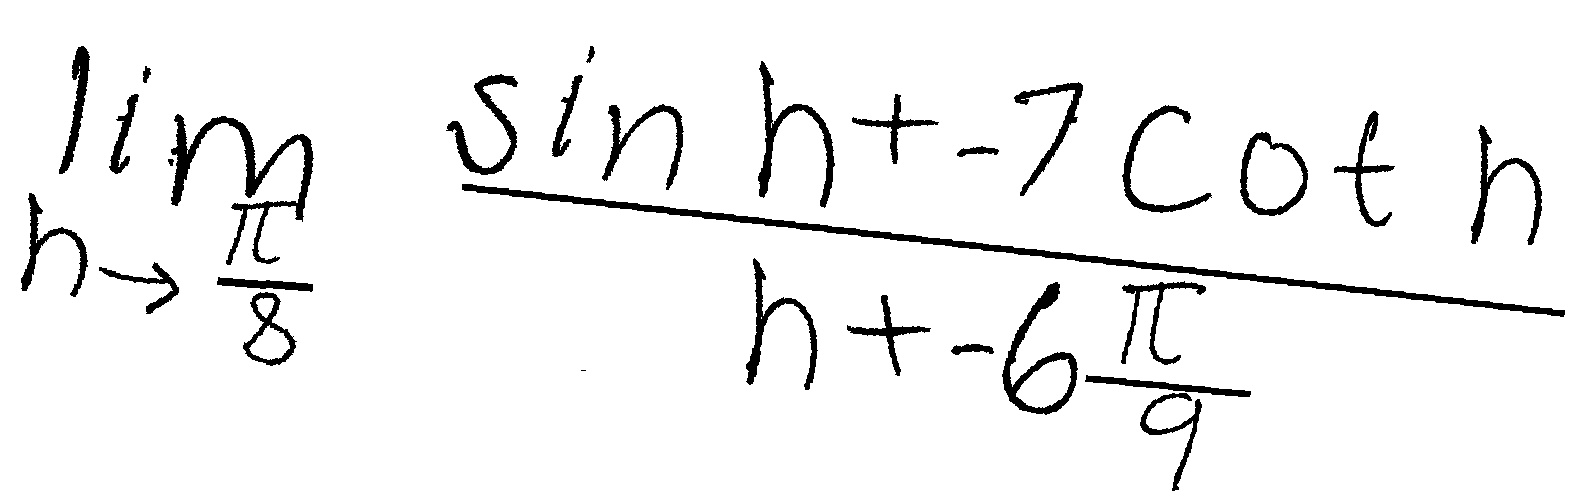 \lim_{h \to \frac{\pi}{8}} \frac{\sin h + -7 \cot h}{h + -6 \frac{\pi}{9}}